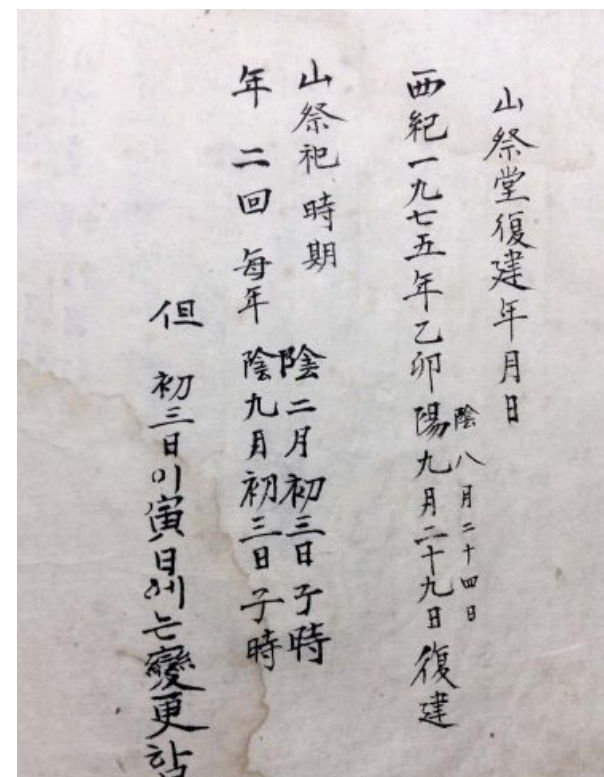 山祭堂復建年月日
西紀一九七五年乙卯陽九月二十九日復建
陰八月二十四日
山祭祀時期
年二回每年
陰二月初三日子時
陰九月初三日子時
但 初三日이寅日에는變更함